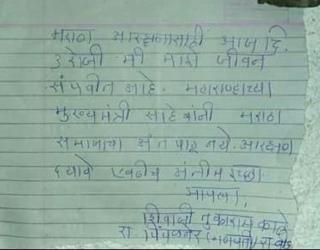 मराठा आरक्षणासाठी आज दि.
३ रोजी मी माझे जीवन
संपवीत आहे. महाराष्ट्राच्या
मुख्यमंत्री साहेबांनी मराठा
समाजाचा अंत पाहू नये. आरक्षण
द्यावे एवढीच अंतीम इच्छा
आपला,
शिवाजी तुकाराम काटे
रा. पिंपळनेर